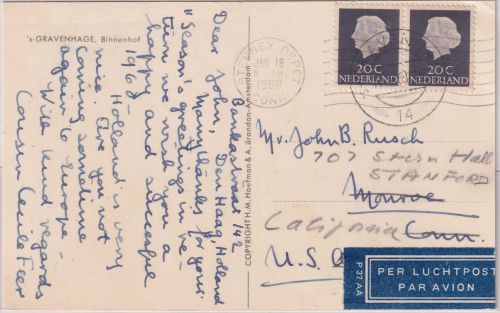 's-GRAVENHAGE, Binnenhof
Den Haag, Holland
Dear John,
Many thanks for your
"Season's greetings" in re-
turn we wish you a
happy and successful
1960
Holland is very
nice. Are you not
Coming sometime
again to Europe-
With kind regards
Cousin Cecile Feer
COPYRIGHT H. M. Hoefman & A. Brandon-Amsterdam
JAN 18
1960
CONN.
20C
NEDERLAND
20C
NEDERLAND
14
Mr. John B. Rusch
707 Stern Hall
STANFORD
Monroe
California Conn.
U.S.
P 37 AA
PER LUCHTPOST
PAR AVION